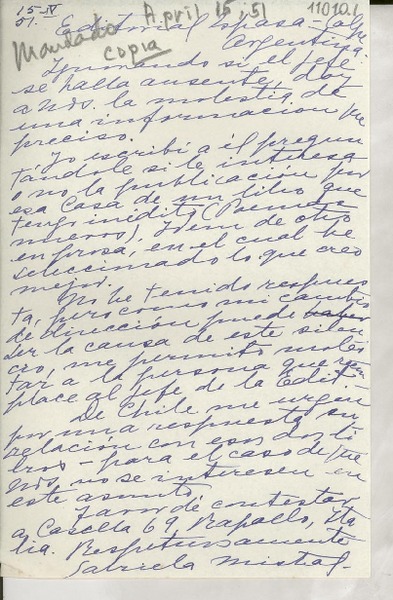 15-IV
51.
Editorial Espasa-Calpe
Argentina.
April 15, 51
110101
Mandado
copia
Ignorando si el Jefe
se halla ausente, doy
a Uds. la molestia de
una información que
preciso.
Yo escribí a él pregun
tándole si le interesa
o no la publicación por
esa Casa de un libro que
tengo inédito (Poemas
nuevos), Idem de otro
en prosa, en el cual he
seleccionado lo que creo
mejor.
No he tenido respues
ta, pero como mi cambio
de dirección puede
ser la causa de este silen
cio, me permito moles
tar a la persona que reem
place al Jefe de la Edit.
De Chile me urgen
por una respuesta en
relación con esos dos li
bros - para el caso de que
Uds. no se interesen en
este asunto.
Favor de contestar
a Casella 69, Rapallo, Ita
lia. Respetuosamente
Gabriela Mistral-